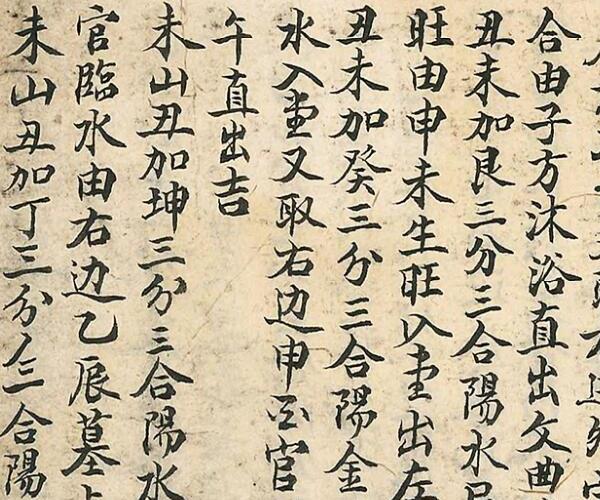 合由子方沐浴直出文曲
丑未加艮三分三合陽水
旺由申未生旺入堂出左
丑未加癸三分三合陽金
水入堂又取右边申官
午直出吉
未山丑加坤三分三合陽水
官臨水由右边乙辰墓
未山丑加丁三分三合陽